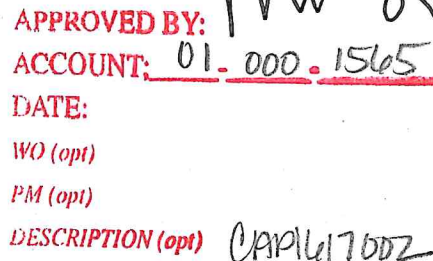 APPROVED BY:
ACCOUNT: 01 - 000 - 1565
DATE:
WO (opt)
PM (opt)
DESCRIPTION (opt) CAP1617002